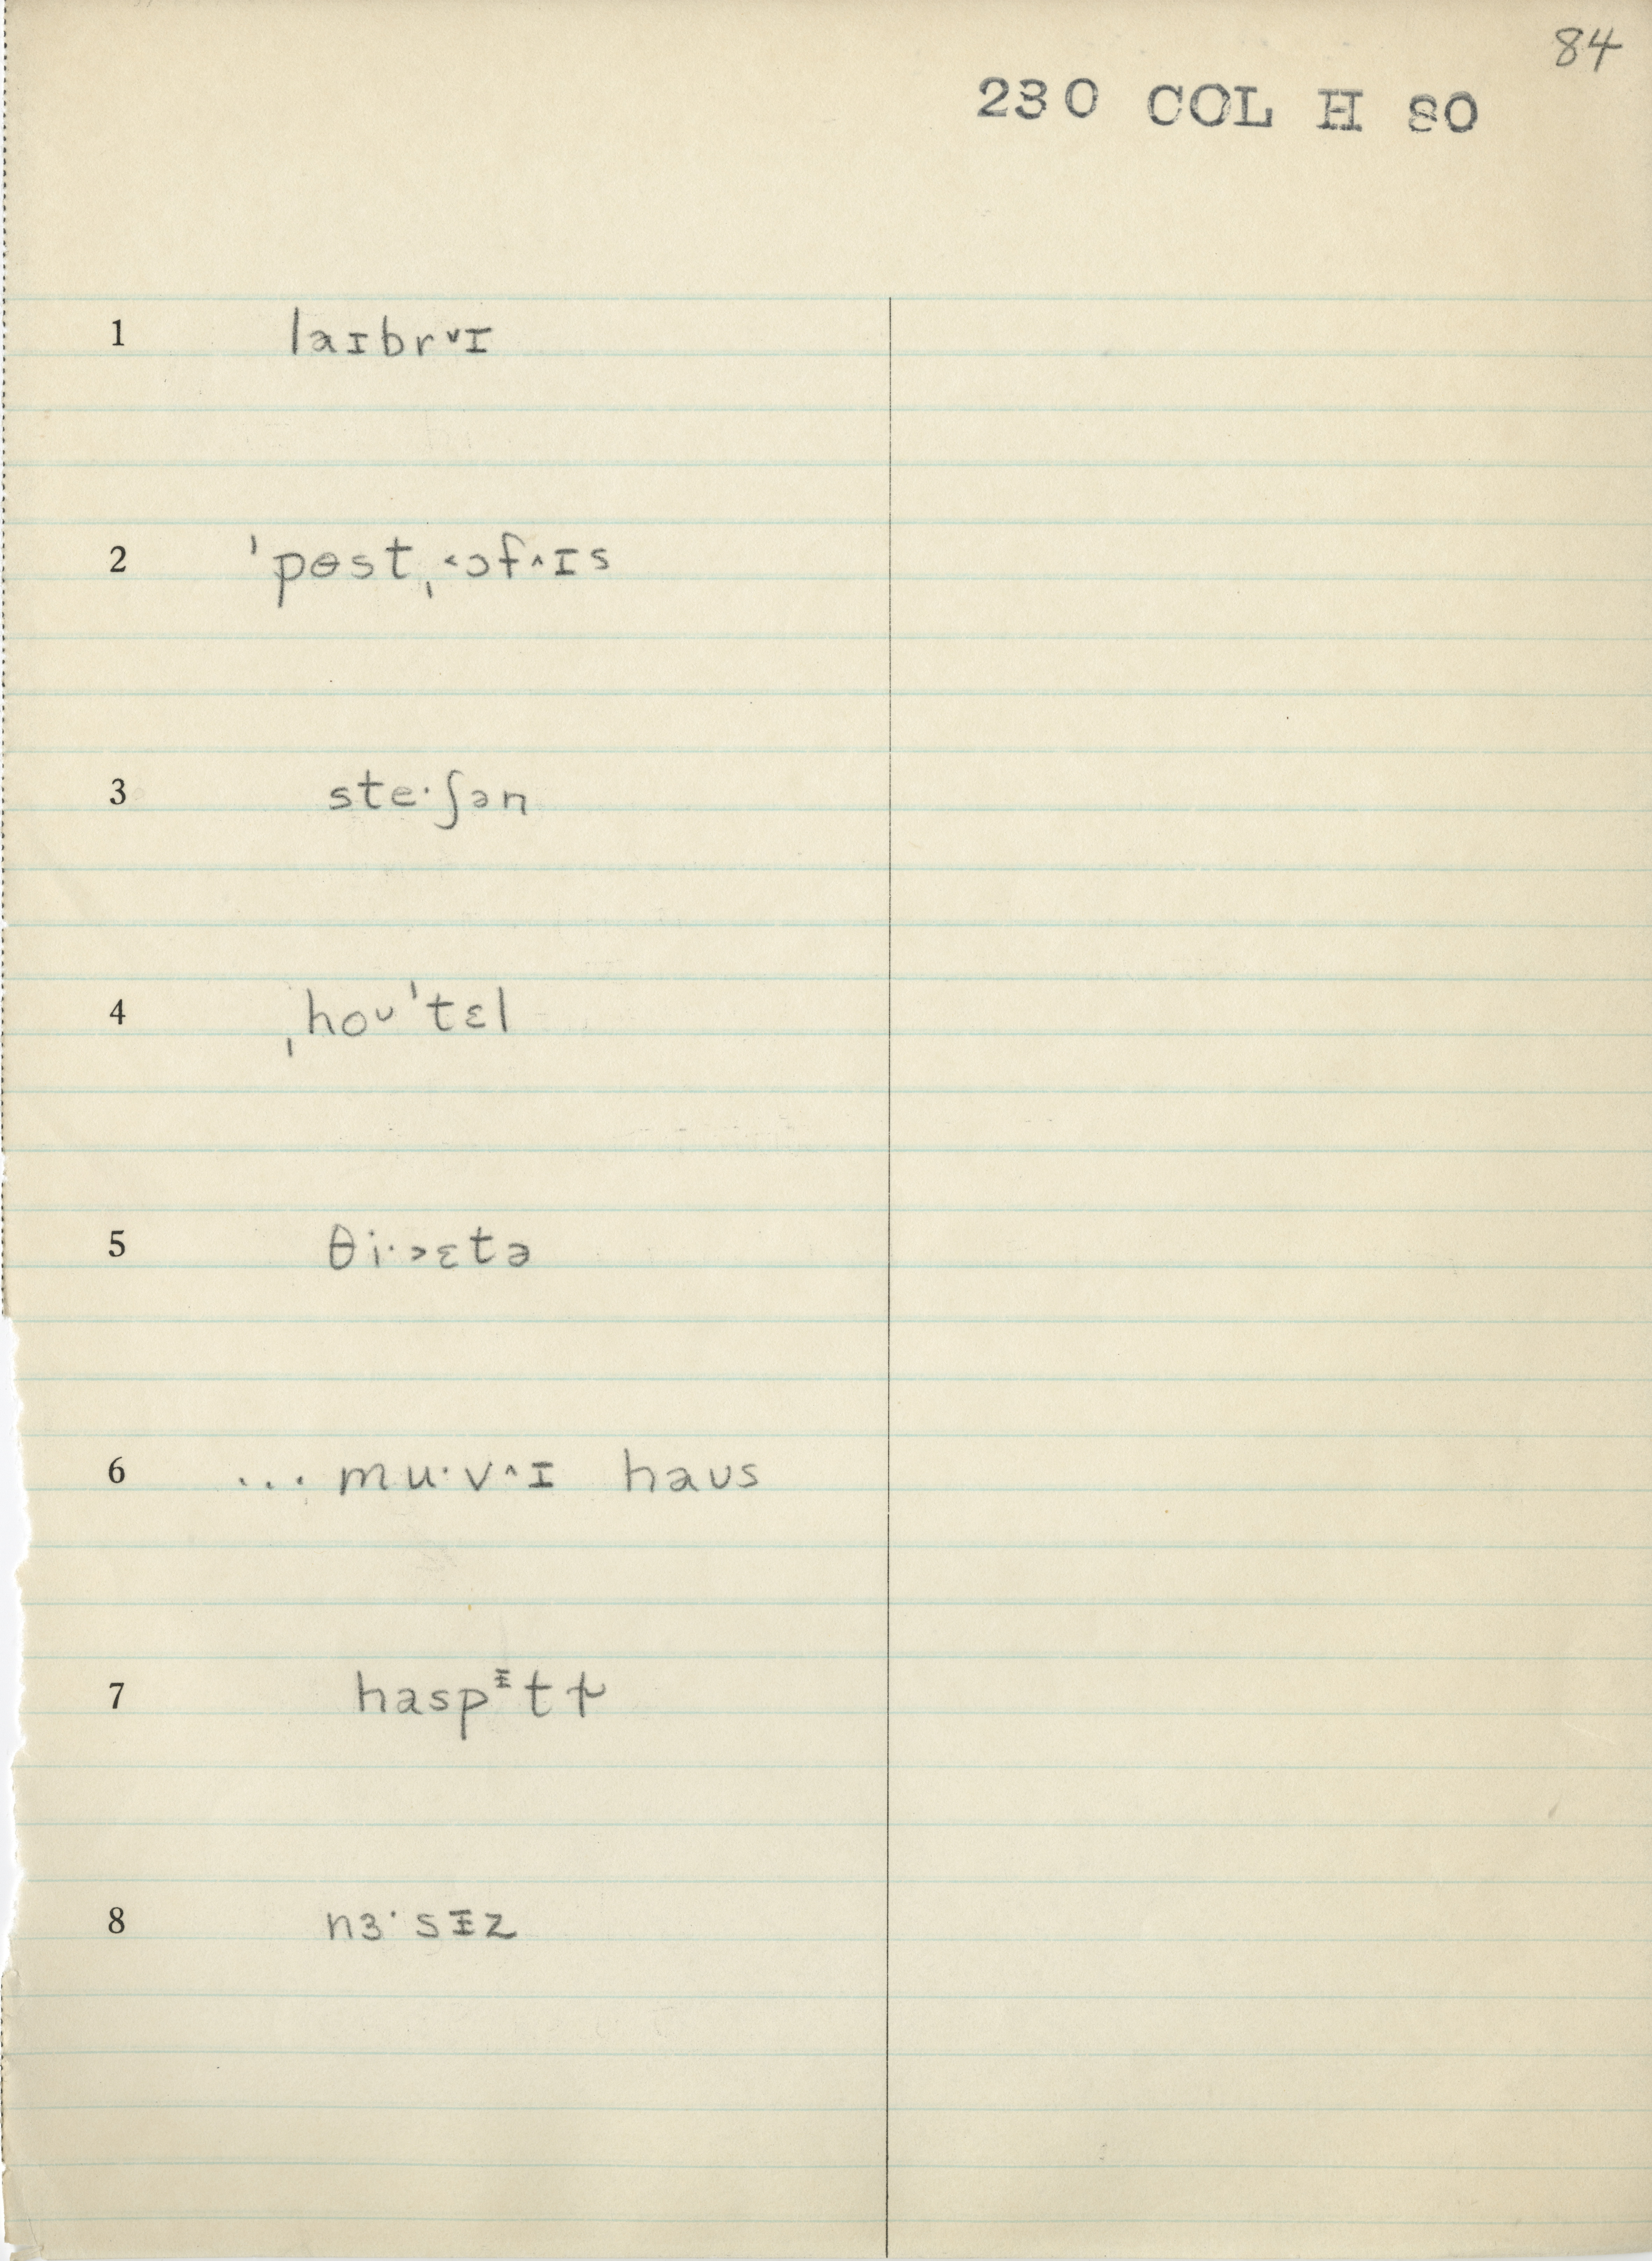 84
230 COL H 80
1 laɪbr˅ɪ
2 ˈpɵstˌ˂ɔf˄ɪs
3 steˑʃən
4 ˌhoᴜˈtɛl
5 θiˑ˃ɛtə
6 ... muˑv˄ɪ haᴜs
7 hasp ᵻtɫ
8 nɜˑsᵻz